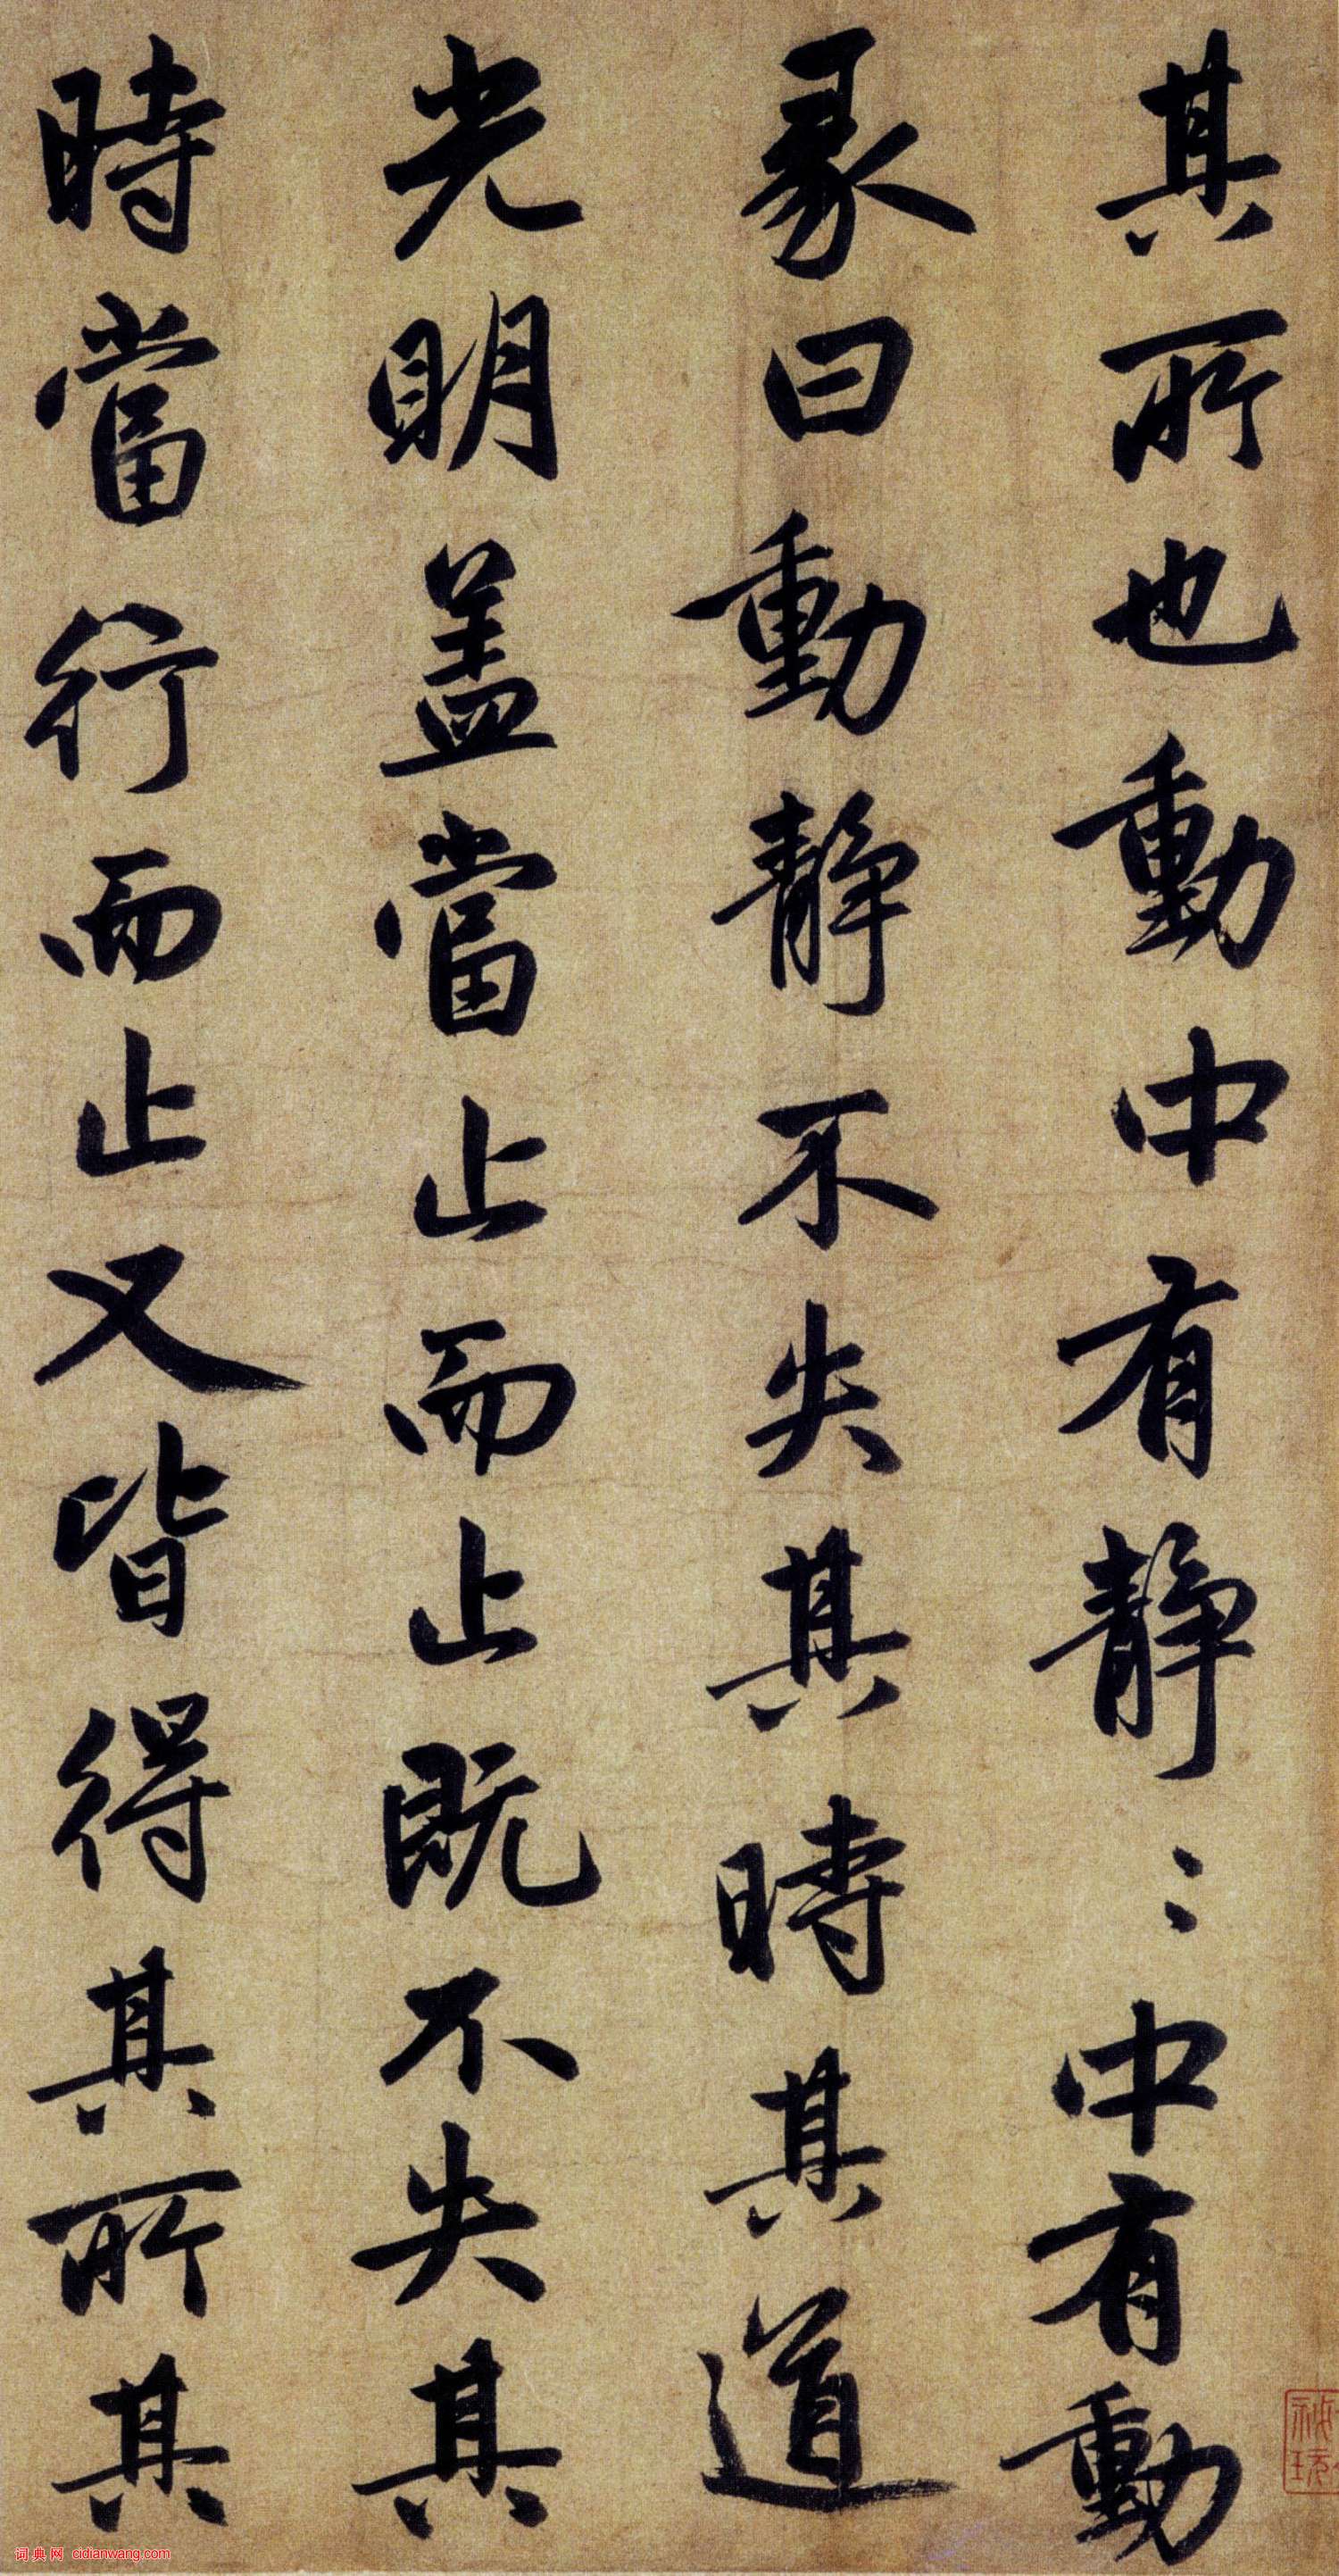 其所也動中有静〻中有動
彖曰動静不失其時其道
光明盖當止而止既不失其
時當行而止又皆得其所其
词典网 cidianwang.com